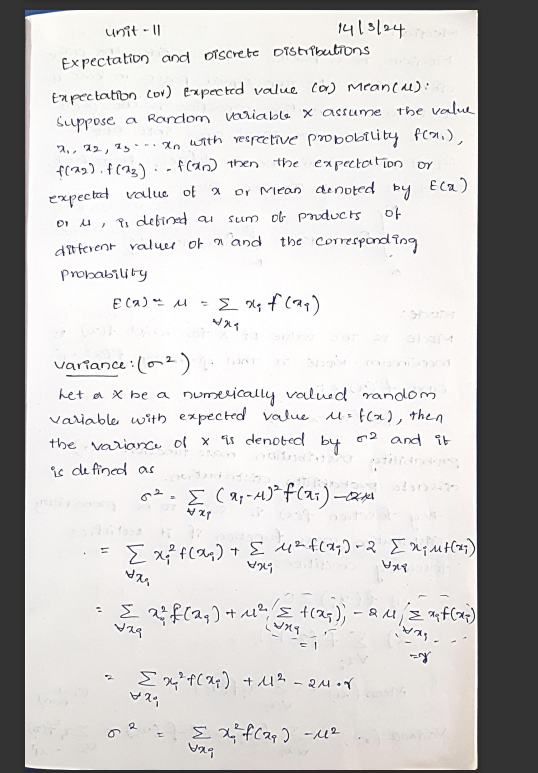 unit - II 14/3/24
Expectation and Discrete Distributions
Expectation (or) Expected value (or) Mean (μ):
Suppose a Random variable x assume the value
x₁, x₂, x₃ ... xₙ with respective probobility f(x₁),
f(x₂), f(x₃) ... f(xₙ) then the expectation or
expected value of x or Mean denoted by E(x)
or μ, is defined as sum of products of
different values of x and the corresponding
probability
E(x) = μ = Σ xᵢ f(xᵢ)
∀xᵢ
variance: (σ²)
Let a X be a numerically valued random
variable with expected value μ = f(x), then
the variance of x is denoted by σ² and it
is defined as
σ² = Σ (xᵢ-μ)² f(xᵢ)
∀xᵢ
= Σ xᵢ² f(xᵢ) + Σ μ² f(xᵢ) - 2 Σ xᵢ μ f(xᵢ)
∀xᵢ ∀xᵢ ∀xᵢ
= Σ xᵢ² f(xᵢ) + μ² (Σ f(xᵢ)) - 2 μ (Σ xᵢ f(xᵢ))
∀xᵢ ∀xᵢ ∀xᵢ
= 1
= Σ xᵢ² f(xᵢ) + μ² - 2μ.
∀xᵢ
σ² = Σ xᵢ² f(xᵢ) - μ²
∀xᵢ